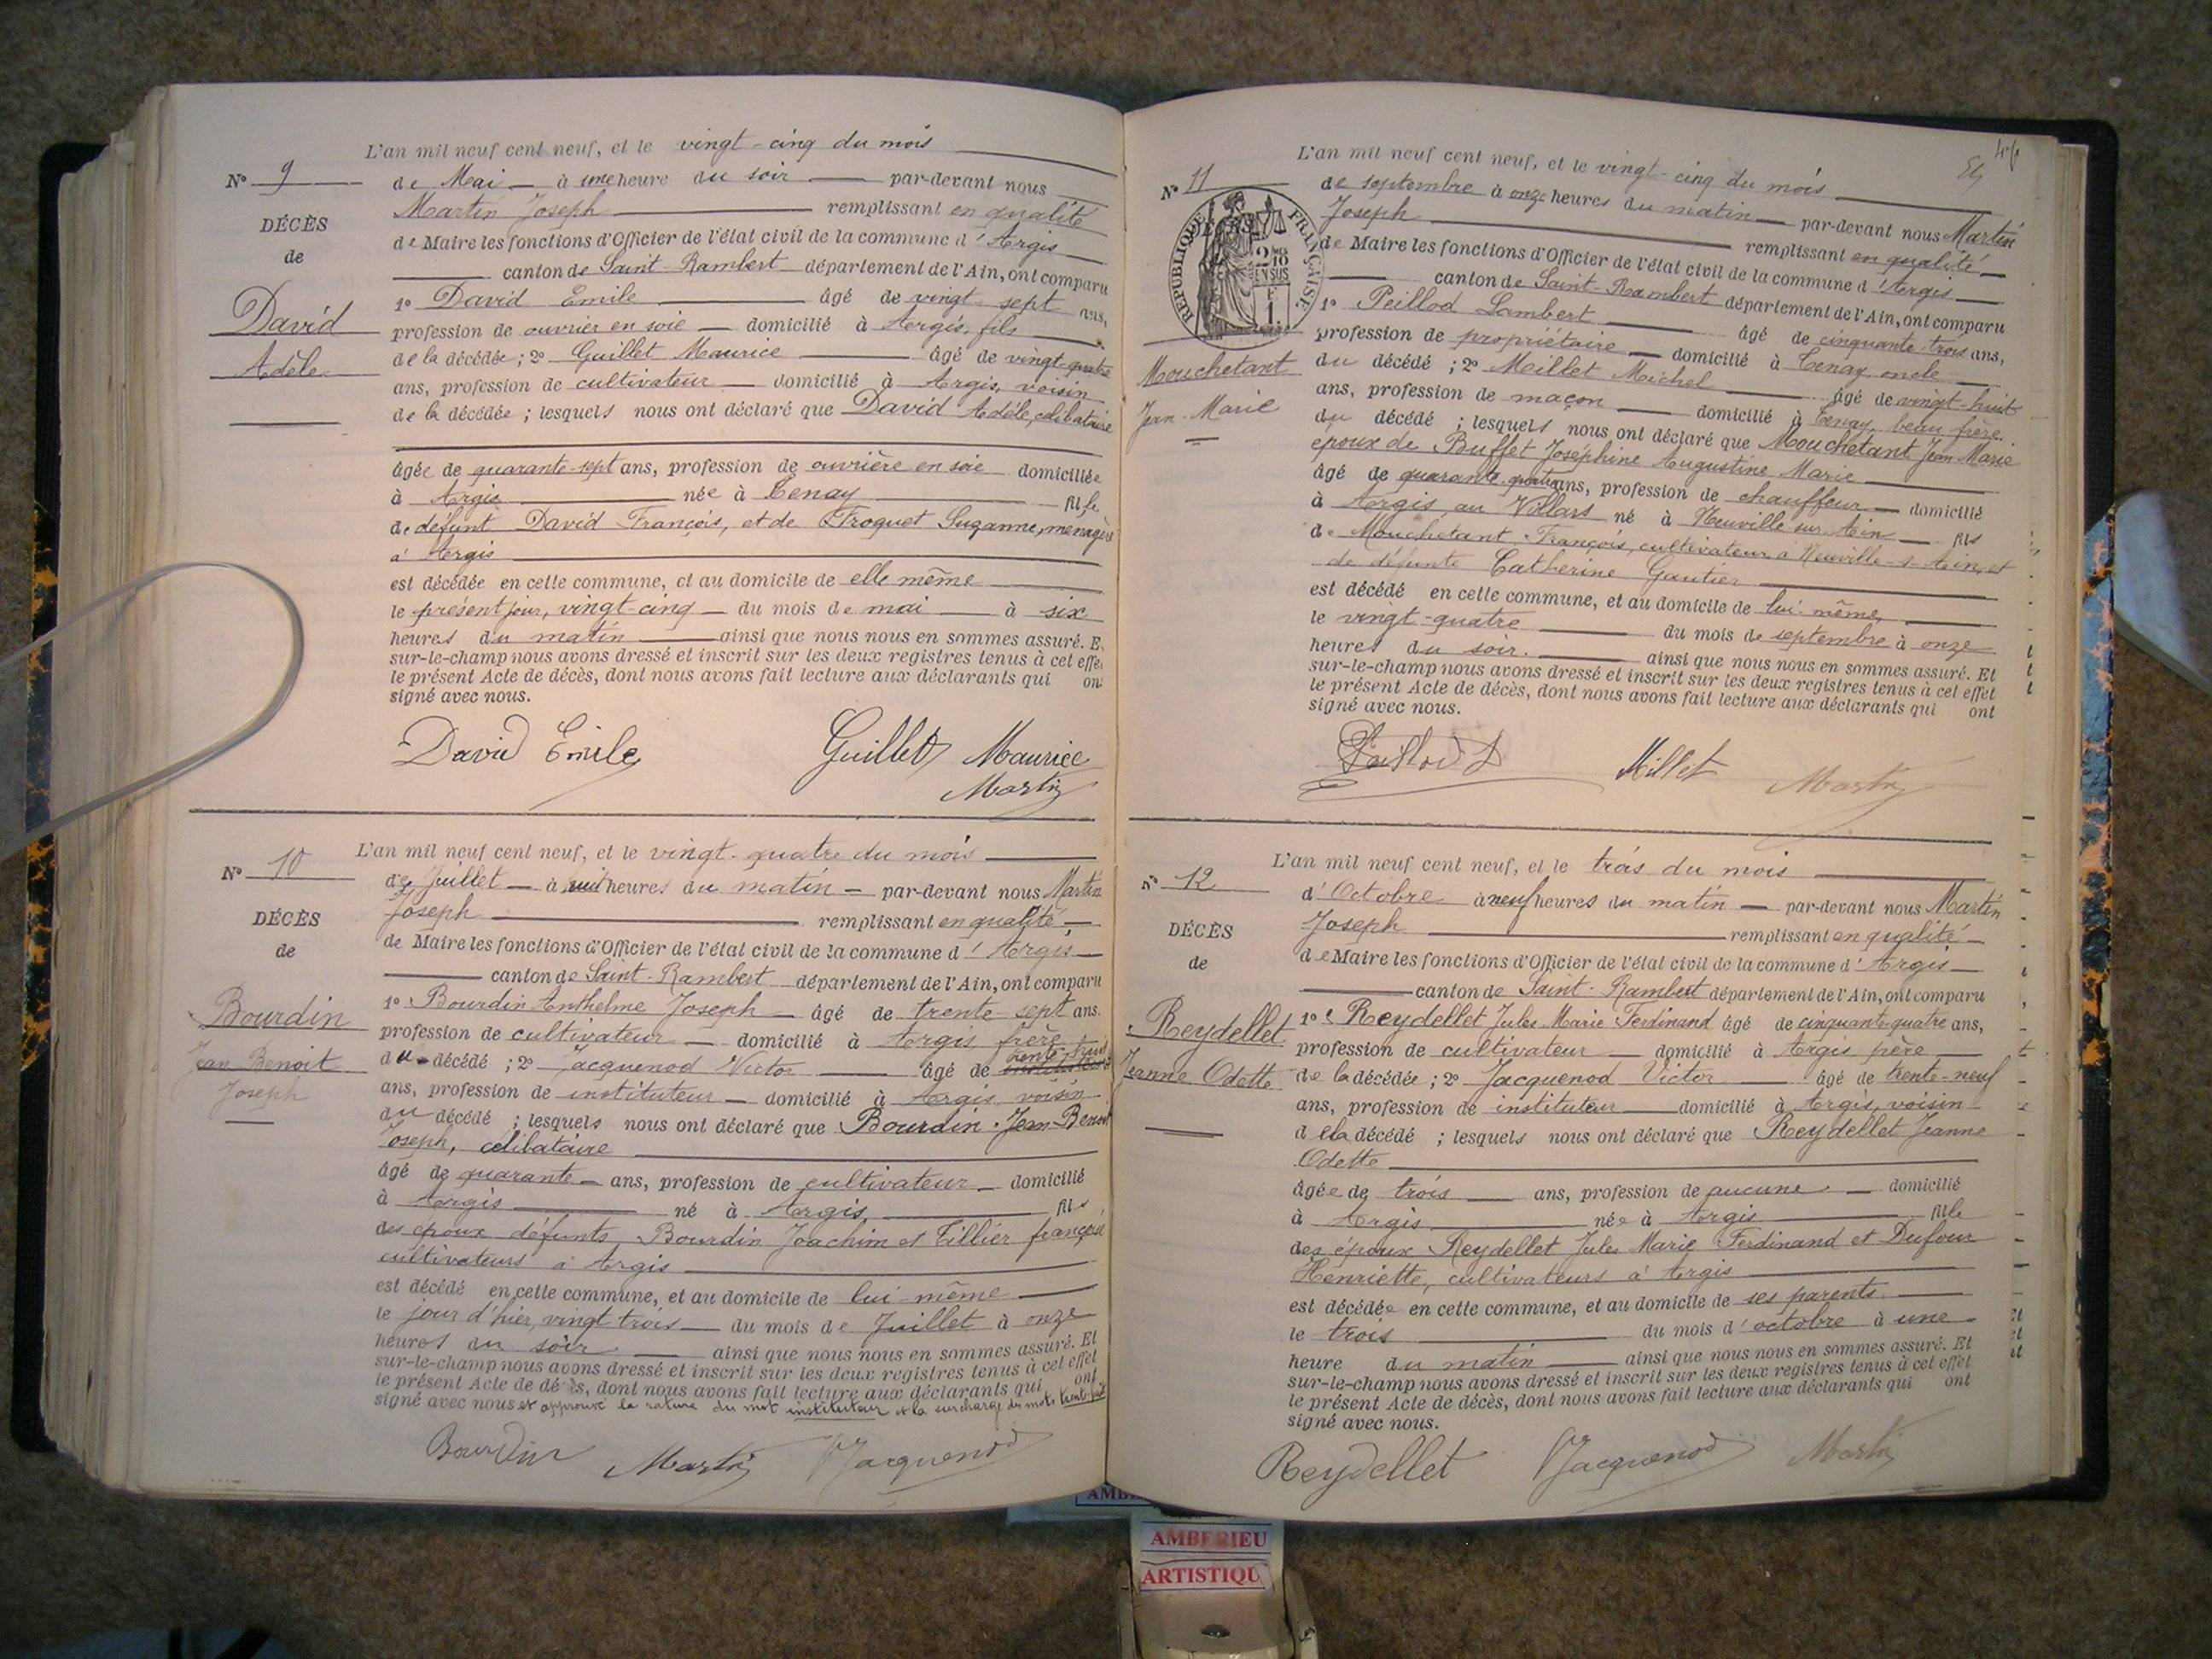 L'an mil neuf cent neuf, et le vingt-cinq du mois
N° 9
de Mai à une heure du soir par-devant nous
Martin Joseph remplissant en qualité
DÉCÈS
de
David
Adèle
de Maire les fonctions d'Officier de l'état civil de la commune d'Argis
canton de Saint-Rambert département de l'Ain, ont comparu
1° David Emile âgé de vingt-sept ans,
profession de ouvrier en soie domicilié à Argis, fils
de la décédée ; 2° Guillet Maurice âgé de vingt-quatre
ans, profession de cultivateur domicilié à Argis, voisin
de la décédée ; lesquels nous ont déclaré que David Adèle, célibataire
âgée de quarante-sept ans, profession de ouvrière en soie domiciliée
à Argis née à Tenay fille
de défunt David François, et de Froquet Suzanne, menagère
à Argis
est décédée en cette commune, et au domicile de elle même
le présent jour, vingt-cinq du mois de mai à six
heures du matin ainsi que nous nous en sommes assuré. E
sur-le-champ nous avons dressé et inscrit sur les deux registres tenus à cet effe
le présent Acte de décès, dont nous avons fait lecture aux déclarants qui on
signé avec nous.
David Emile Guillet Maurice
Martin
L'an mil neuf cent neuf, et le vingt-quatre du mois
N° 10
de Juillet à huit heures du matin par-devant nous Martin
Joseph remplissant en qualité
DÉCÈS
de
Bourdin
Jean Benoit
Joseph
de Maire les fonctions d'Officier de l'état civil de la commune d'Argis
canton de Saint-Rambert département de l'Ain, ont comparu
1° Bourdin Anthelme Joseph âgé de trente-sept ans.
profession de cultivateur domicilié à Argis frère
du décédé ; 2° Jacquenod Victor âgé de trente
ans, profession de instituteur domicilié à Argis, voisin
du décédé ; lesquels nous ont déclaré que Bourdin Jean Benoit
Joseph, célibataire
âgé de quarante ans, profession de cultivateur domicilié
à Argis né à Argis fils
des époux défunts, Bourdin Joachim et Tillier françoise
cultivateurs à Argis
est décédé en cette commune, et au domicile de lui-même
le jour d'hier, vingt trois du mois de Juillet à onze
heures du soir ainsi que nous nous en sommes assuré. Et
sur-le-champ nous avons dressé et inscrit sur les deux registres tenus à cet effet
le présent Acte de décès, dont nous avons fait lecture aux déclarants qui ont
signé avec nous et approuvé la rature du mot instituteur et la surcharge des mots
Bourdin Martin Jacquenod
46
L'an mil neuf cent neuf, et le vingt-cinq du mois
N° 11
de septembre à onze heures du matin par-devant nous Martin
Joseph remplissant en qualité
RÉPUBLIQUE FRANÇAISE
EN SUS
Mouchetant
Jean-Marie
de Maire les fonctions d'Officier de l'état civil de la commune d'Argis
canton de Saint-Rambert département de l'Ain, ont comparu
1° Peillod Lambert âgé de cinquante-trois ans,
profession de propriétaire domicilié à Tenay oncle
du décédé ; 2° Meillet Michel âgé de vingt-huit
ans, profession de maçon domicilié à Tenay, beau frère
du décédé ; lesquels nous ont déclaré que Mouchetant Jean-Marie
époux de Buffet Joséphine Augustine Marie
âgé de quarante-quatre ans, profession de chauffeur domicilié
à Argis, au Vollars né à Neuville sur Ain fils
de Mouchetant, François, cultivateur à Neuville-s-Ain, et
de défunte Catherine Gautier
est décédé en cette commune, et au domicile de lui-même,
le vingt-quatre du mois de septembre à onze
heures du soir. ainsi que nous nous en sommes assuré. Et
sur-le-champ nous avons dressé et inscrit sur les deux registres tenus à cet effet
le présent Acte de décès, dont nous avons fait lecture aux déclarants qui ont
signé avec nous.
Peillod L Millet Martin
L'an mil neuf cent neuf, et le trois du mois
N° 12
d'Octobre à neuf heures du matin par-devant nous Martin
Joseph remplissant en qualité
DÉCÈS
de
Reydellet
Jeanne Odette
de Maire les fonctions d'Officier de l'état civil de la commune d'Argis
canton de Saint-Rambert département de l'Ain, ont comparu
1° Reydellet Jules Marie Ferdinand âgé de cinquante-quatre ans,
profession de cultivateur domicilié à Argis père
de la décédée ; 2° Jacquenod Victor âgé de trente-neuf
ans, profession de instituteur domicilié à Argis, voisin
de la décédé ; lesquels nous ont déclaré que Reydellet Jeanne
Odette
âgée de trois ans, profession de aucune domicilié
à Argis née à Argis fille
des époux Reydellet Jules Marie Ferdinand et Dufour
Henriette, cultivateurs à Argis
est décédée en cette commune, et au domicile de ses parents
le trois du mois d'octobre à une
heure du matin ainsi que nous nous en sommes assuré. Et
sur-le-champ nous avons dressé et inscrit sur les deux registres tenus à cet effet
le présent Acte de décès, dont nous avons fait lecture aux déclarants qui ont
signé avec nous.
Reydellet Jacquenod Martin
AMBERIEU
ARTISTIQU